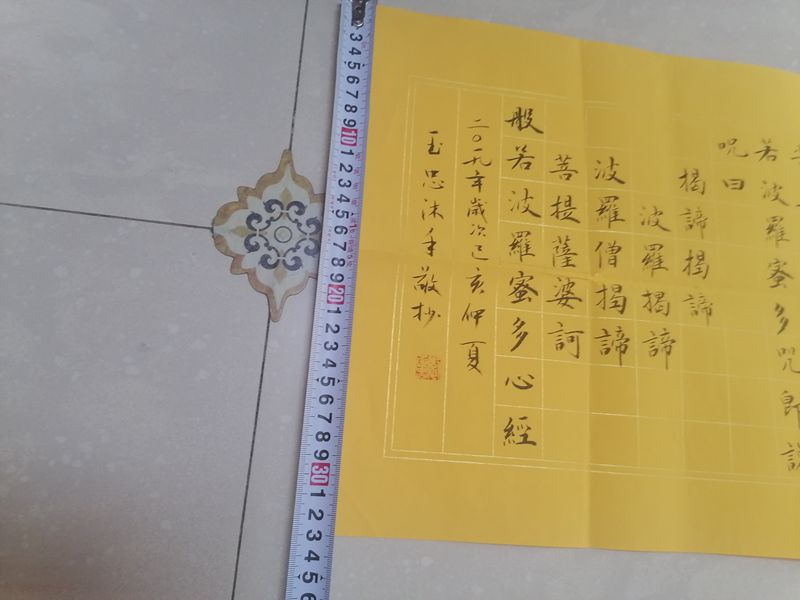 若波羅蜜多咒即說
咒曰
揭諦揭諦
波羅揭諦
波羅僧揭諦
菩提薩婆訶
般若波羅蜜多心經
二〇一九年歲次己亥仲夏
玉忠沐手敬抄
3 4 5 6 7 8 9 10 1 2 3 4 5 6 7 8 9 20 1 2 3 4 5 6 7 8 9 30 1 2 3 4 5